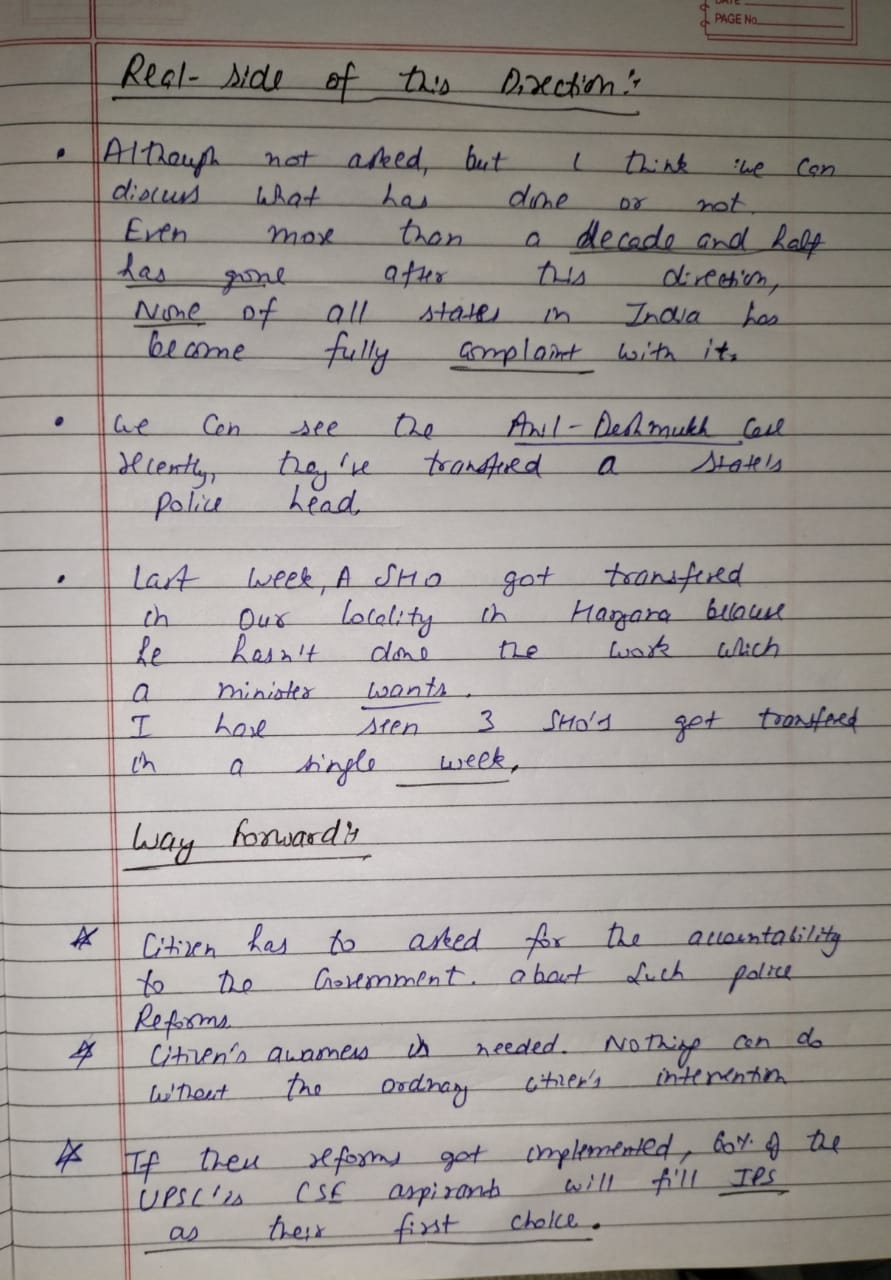 DATE
PAGE No.
Real-side of this Direction:-
• Although not asked, but I think we can
discuss what has done or not.
Even more than a decade and half
has gone after this direction,
None of all states in India has
become fully complaint with it.
• We can see the Anil-Deshmukh case
recently, they've transfered a state's
police head.
• Last week, A SHO got transfered
in our locality in Haryana because
he hasn't done the work which
a minister wants.
I have seen 3 SHO's get transfered
in a single week.
Way forward:-
Citizen has to asked for the accountability
to the Government. about such police
Reforms.
Citizen's awarness is needed. Nothing can do
without the ordnary citizen's intervention
If these reforms got implemented, 60% of the
UPSC's CSE aspirants will fill IPS
as their first choice.